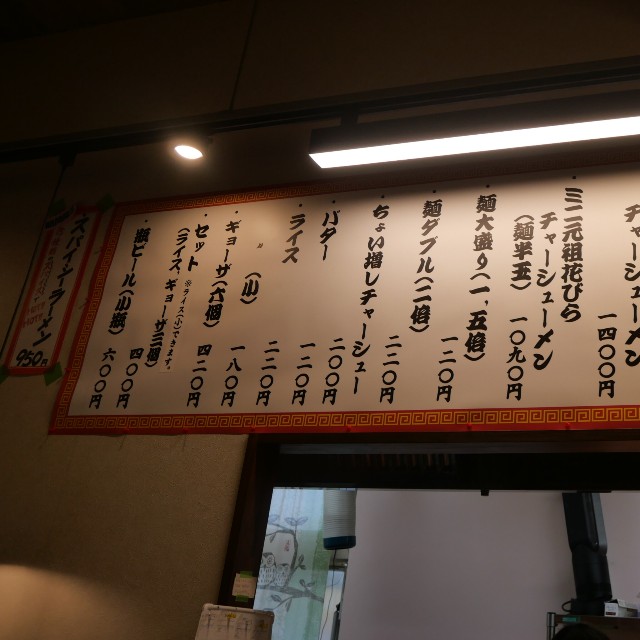 チャーシューメン 一四〇〇円
ミニ元祖花びら
チャーシューメン
(麺半玉) 一〇九〇円
麺大盛り(一、五倍) 一二〇円
麺ダブル(二倍) 二二〇円
ちょい増しチャーシュー 二〇〇円
バター 一二〇円
ライス 二二〇円
〃 (小) 一八〇円
ギョーザ(六個) 四二〇円
セット
(ライス、ギョーザ三個) 四〇〇円
瓶ビール(小瓶) 六〇〇円
スパイシーラーメン
950円